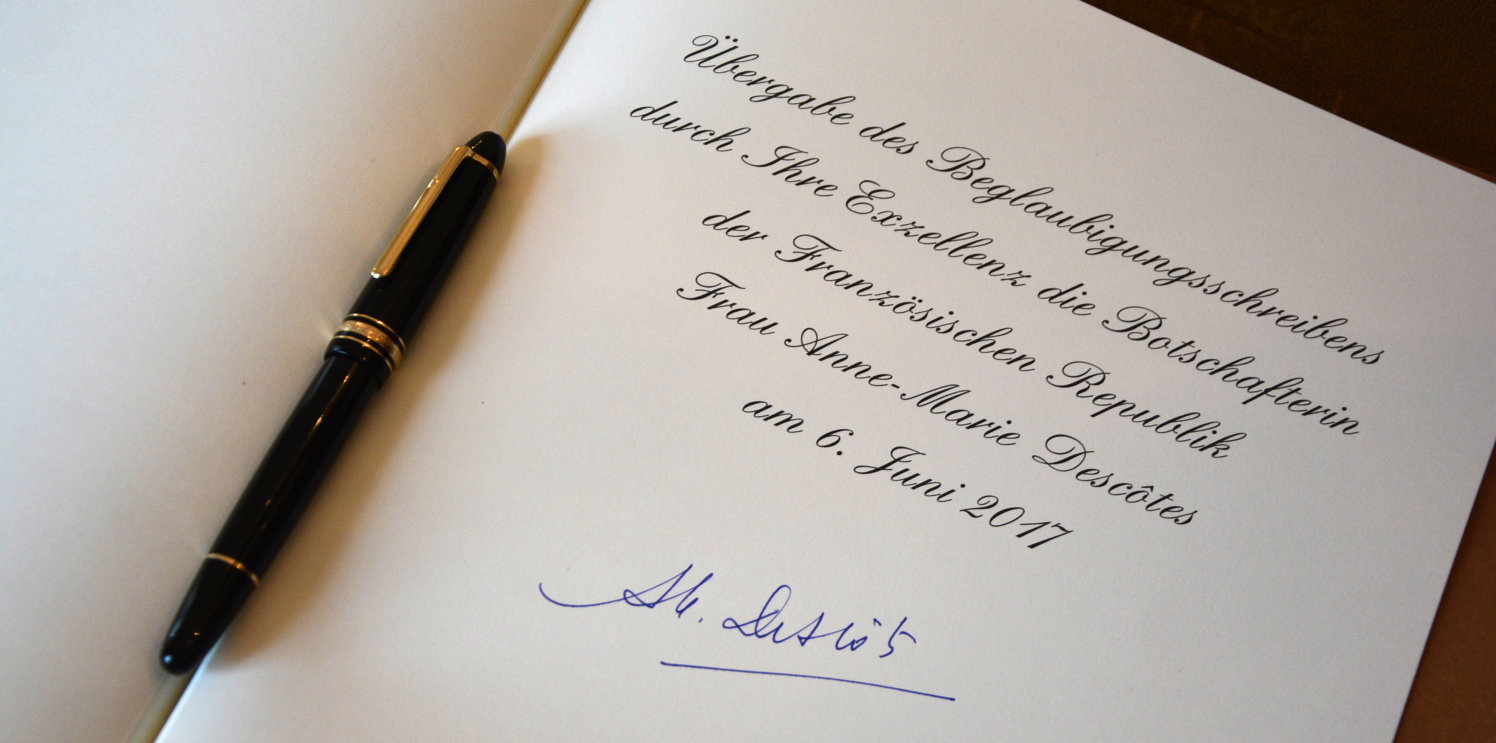 Übergabe des Beglaubigungsschreibens
durch Ihre Exzellenz die Botschafterin
der Französischen Republik
Frau Anne-Marie Descôtes
am 6. Juni 2017